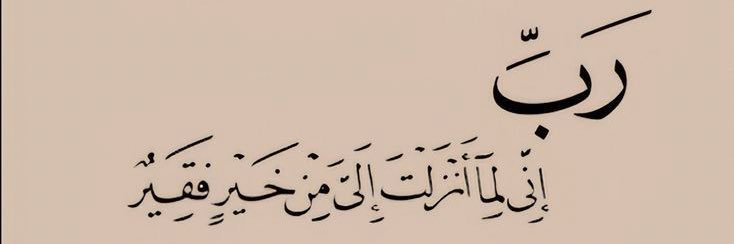 رَبِّ
إِنِّى لِمَآ أَنْزَلْتَ إِلَىَّ مِنْ خَيْرٍ فَقِيرٌ